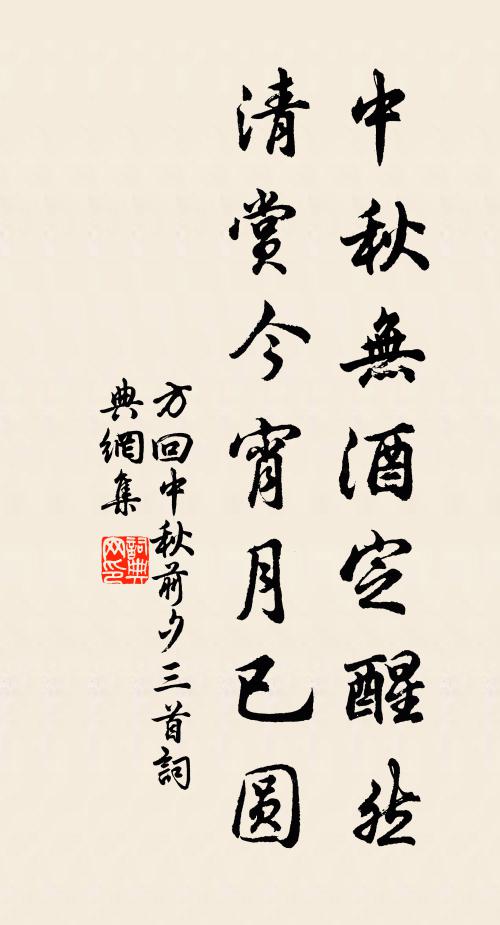 中秋無酒定醒然
清賞今宵月已圆
方回中秋前夕三首詞
典網集
詞典
网印